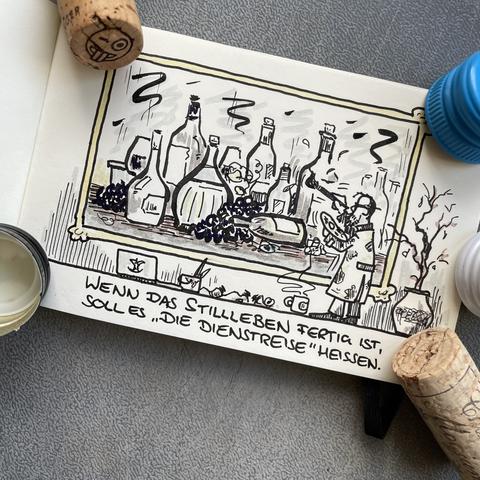 WENN DAS STILLLEBEN FERTIG IST,
SOLL ES „DIE DIENSTREISE" HEISSEN.